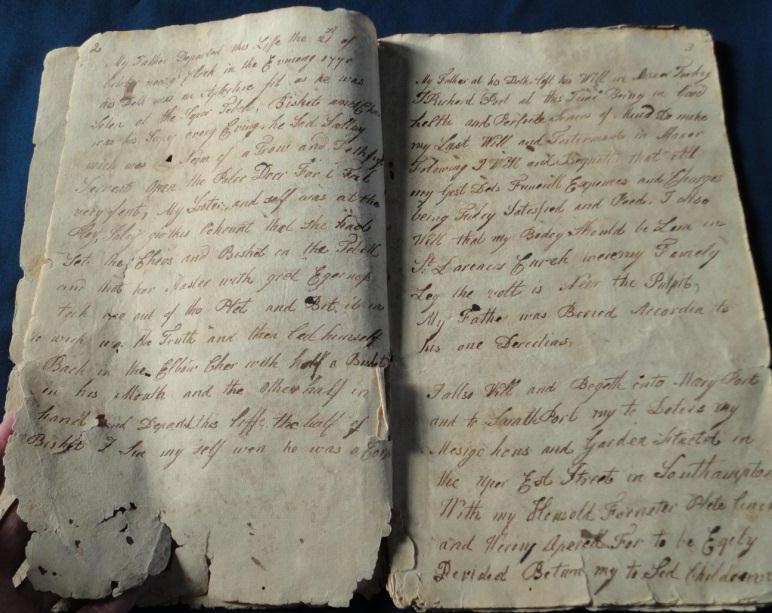 2
My Father Departed this Life the 21 of
nine a Clock in the Evning 1770
his Deth was an fit as he was
at the Biskets and Chees
was his every Evning he Sad
wich was a of a and
upon the Doer For I
My Sister and self was at the
on this that She had
Sett the Chees and Bisket on the
and that her Master with gret Egernes
tock one out of the and Bit it in
to wich was the Truth and then led himself
Back in the Elbow Cher with half a Bisket
in his Mouth and the other half in
hand and Departd this Life the half of
Bisket I See my self wen he was a
3
My Father at his Deth left his Will in
I Richard Port at this Time Being in Good
helth and Perfect of Mind Do make
my Last Will and Testement in Maner
Following I Will and Bequeth that All
my Gust Dets Funerill Expences and Charges
being Fuley Satesfied and Paed. I also
Will that my Bodey Should be Lem in
St. Larences Church were my Famely
Ley the volt is Neer the Pulpit,
My Father was Beried Accordin to
his one Deredtias,
I allso Will and Begeth unto Mary Port
and to Sarath Port my to Doters my
hous and Garden Situated in
the Uper Est Street in Southampton
With my Housold Forneter Plete
and Wering Aperell For to be Eqely
Devided Between my to Sed Children